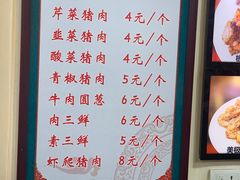 芹菜猪肉 4元/个
韭菜猪肉 4元/个
酸菜猪肉 4元/个
青椒猪肉 5元/个
牛肉圆葱 6元/个
肉三鲜 6元/个
素三鲜 5元/个
虾爬猪肉 8元/个